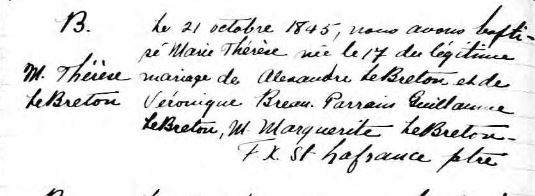 B. Le 21 octobre 1845, nous avons bapti-
sé Marie Thérèse née le 17 du légitime
M. Thérèse mariage de Alexandre LeBreton et de
LeBreton Véronique Breau. Parrain Guillaume
LeBreton, M. Marguerite LeBreton-
F X. St Lafrance ptre